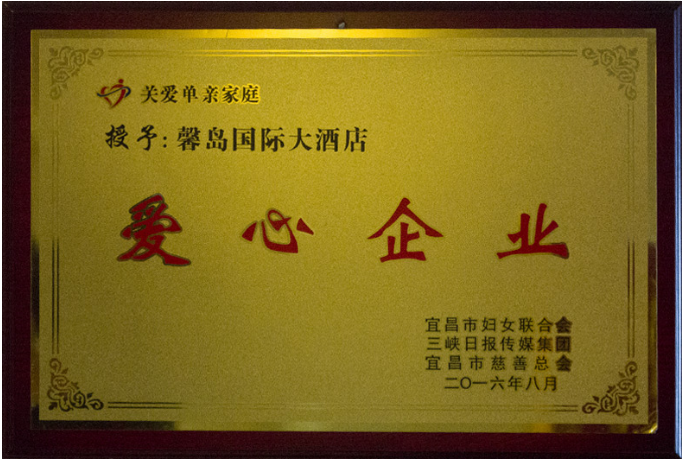 关爱单亲家庭
授予:馨岛国际大酒店
爱心企业
宜昌市妇女联合会
三峡日报传媒集团
宜昌市慈善总会
二〇一六年八月